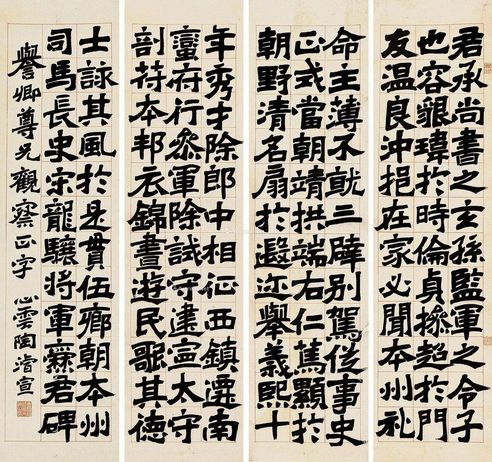 君承尚書之玄孫監軍之令子
也容貌瑋於時倫貞操超於門
友温良沖挹在家必聞本州礼
命主薄不就三辟别駕從事史
正式當朝靖拱端右仁篤顯於
朝野清名扇於遐迩舉義熙十
年秀才除郎中相征西鎮遷南
蠻府行叅軍除試守建寧太守
剖符本邦衣錦晝遊民歌其德
士詠其風於是貫伍鄉朝本州
司馬長史宋龍驤將軍爨君碑
譽卿尊兄觀察正字 心雲陶濬宣